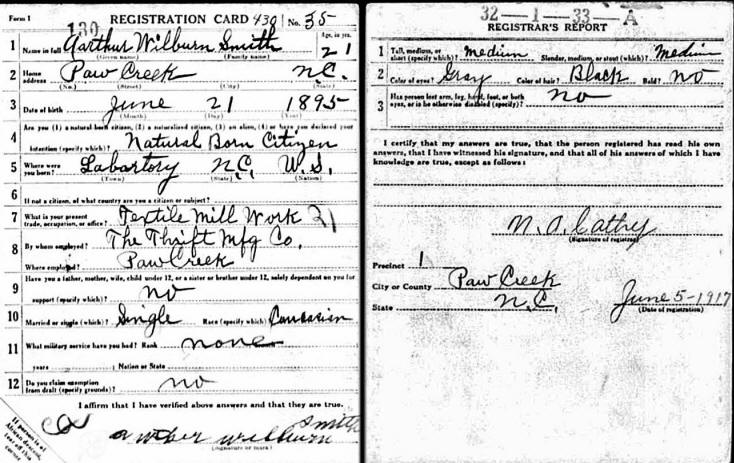 Form 1 REGISTRATION CARD 430 No. 35
130
1 Name in full Garthur Wilburn Smith Age, in yrs. 21
(Given name) (Family name)
2 Home address Paw Creek N.C.
(No.) (Street) (City) (State)
3 Date of birth June 21 1895
(Month) (Day) (Year)
4 Are you (1) a natural-born citizen, (2) a naturalized citizen, (3) an alien, (4) or have you declared your
intention (specify which)? Natural Born Citizen
5 Where were you born? Labartory N.C. U.S.
(Town) (State) (Nation)
6 If not a citizen, of what country are you a citizen or subject?
7 What is your present trade, occupation, or office? Textile Mill Work 21
8 By whom employed? The Thrift Mfg Co.
Where employed? Paw Creek
9 Have you a father, mother, wife, child under 12, or a sister or brother under 12, solely dependent on you for
support (specify which)? no
10 Married or single (which)? Single Race (specify which)? Caucasian
11 What military service have you had? Rank none
years Nation or State
12 Do you claim exemption from draft (specify grounds)? no
I affirm that I have verified above answers and that they are true.
wilburn Smith
(Signature or mark)
If person is of
African descent,
tear off this
corner
32-1-33-A
REGISTRAR'S REPORT
1 Tall, medium, or short (specify which)? medium Slender, medium, or stout (which)? medium
2 Color of eyes? Gray Color of hair? Black Bald? no
3 Has person lost arm, leg, hand, foot, or both
eyes, or is he otherwise disabled (specify)? no
I certify that my answers are true, that the person registered has read his own
answers, that I have witnessed his signature, and that all of his answers of which I have
knowledge are true, except as follows:
N. O. Cathy
(Signature of registrar)
Precinct 1
City or County Paw Creek
State N.C. June 5-1917
(Date of registration)